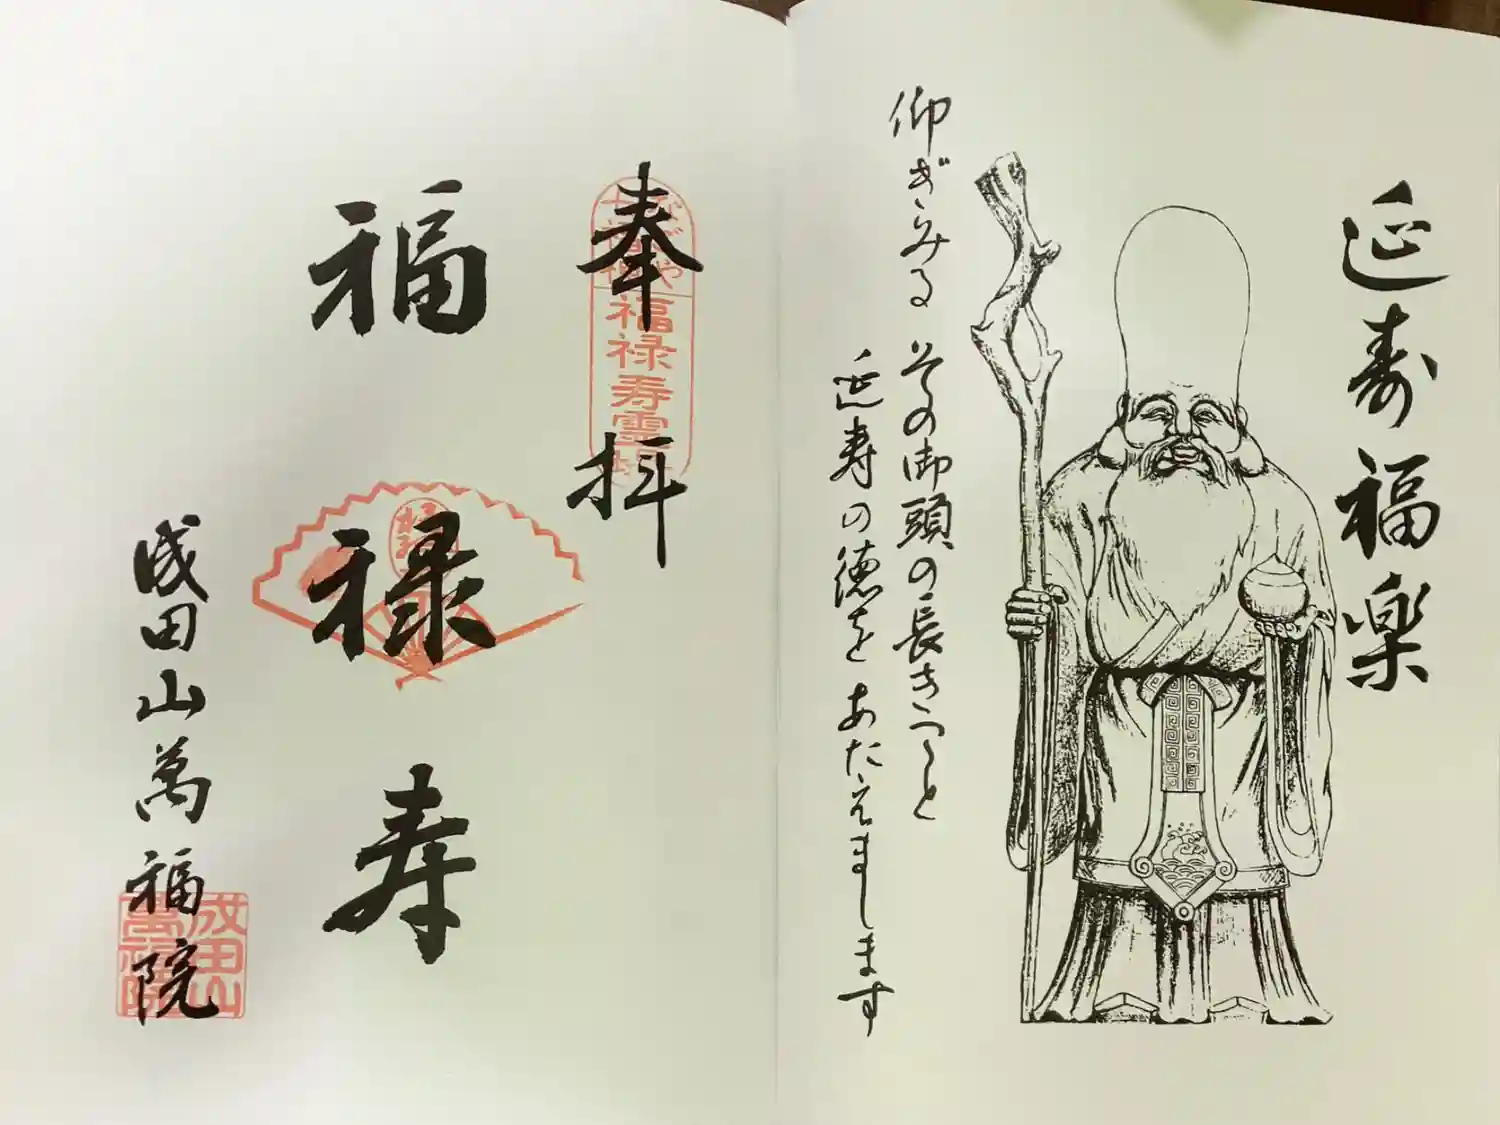 延寿福楽
仰ぎみる その御頭の長きこと
延寿の徳を あたえまします
奉拝
なごや
七福神
福禄寿霊場
福禄寿
成田山萬福院
成田山
萬福院